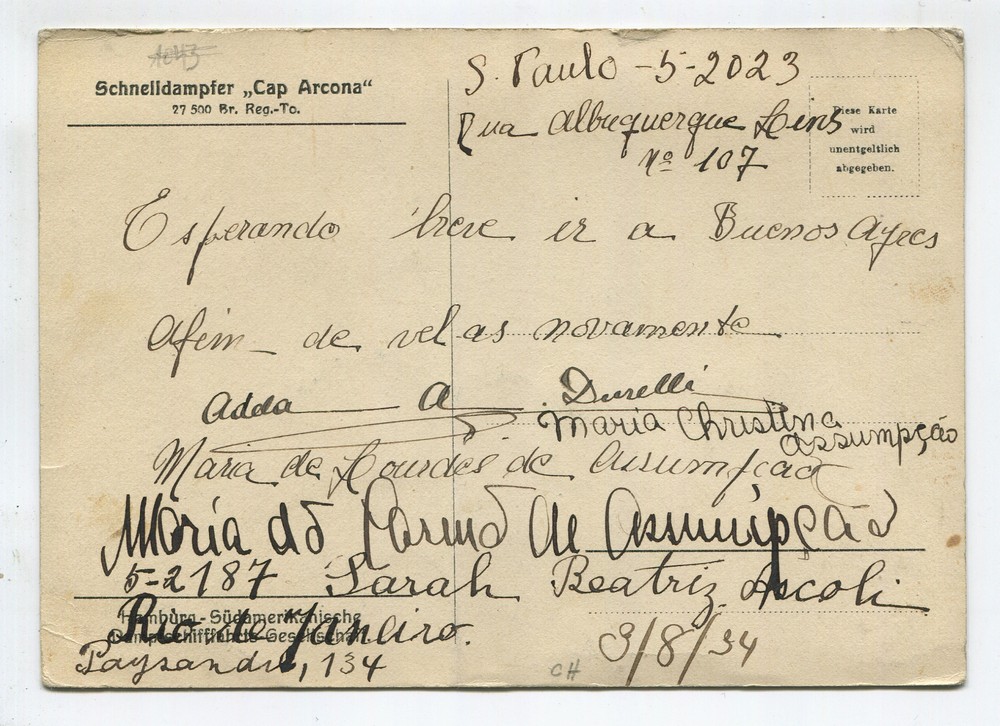 Schnelldampfer „Cap Arcona“
27 500 Br. Reg.-To.
S. Paulo - 5-2023
Rua Albuquerque Lins
Nº 107
Diese Karte
wird
unentgeltlich
abgegeben.
Esperando breve ir a Buenos Ayres
Afim de vel as novamente
Adda A. Durelli
Maria Christina
Assumpção
Maria de Lourdes de Assumpção
Maria do Carmo de Assumpção
5-2187 Sarah Beatriz Ascoli
Hamburg-Südamerikanische
Dampfschifffahrts-Gesellschaft
Rio de Janeiro.
Paysandu, 134
3/8/34
CH